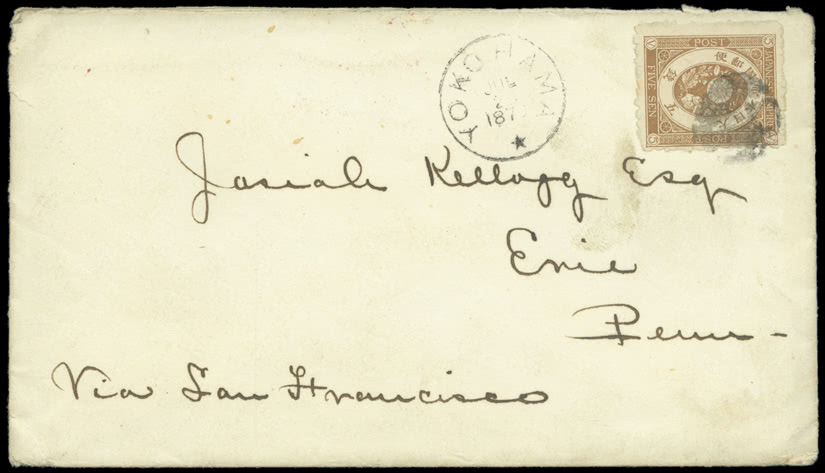 YOKOHAMA
JUL
187
POST
便郵
五
FIVE SEN
5
5
Josiah Kellogg Esq
Erie
Penn -
Via San Francisco